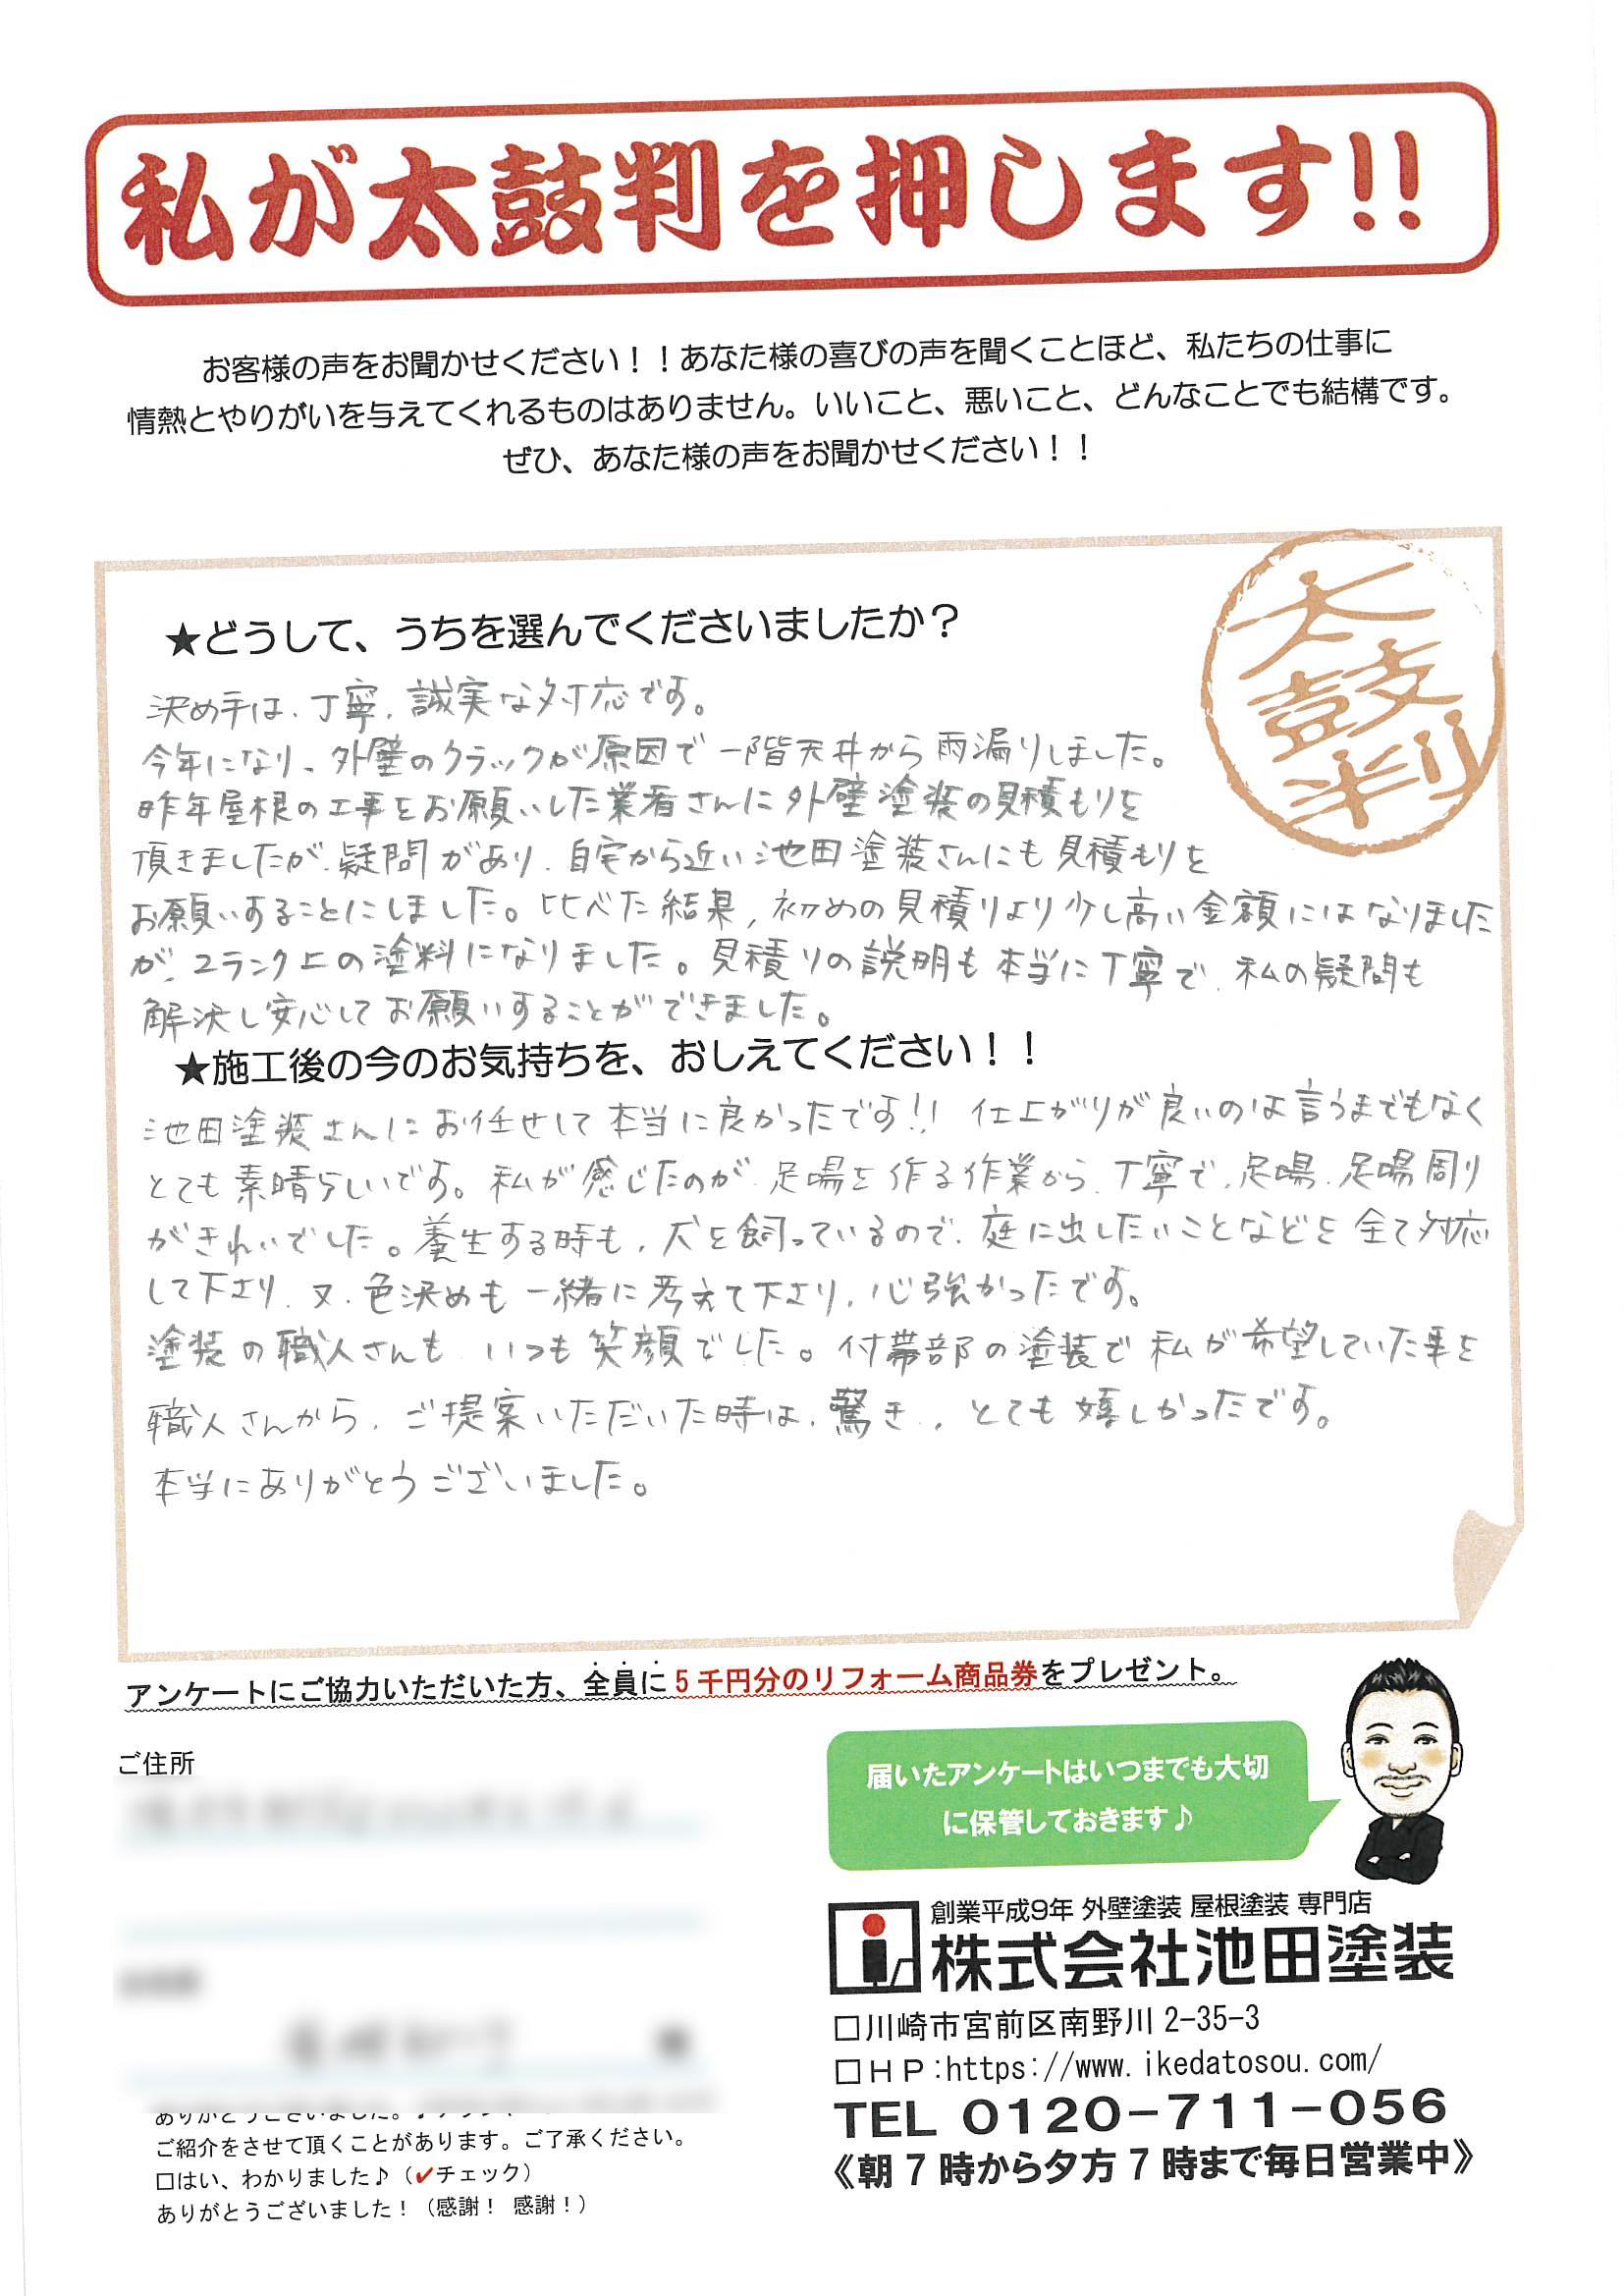 私が太鼓判を押します!!
お客様の声をお聞かせください！！あなた様の喜びの声を聞くことほど、私たちの仕事に
情熱とやりがいを与えてくれるものはありません。いいこと、悪いこと、どんなことでも結構です。
ぜひ、あなた様の声をお聞かせください！！
太鼓判
★どうして、うちを選んでくださいましたか？
決め手は、丁寧、誠実な対応です。
今年になり、外壁のクラックが原因で一階天井から雨漏りしました。
昨年屋根の工事をお願いした業者さんに外壁塗装の見積もりを
頂きましたが、疑問があり、自宅から近い池田塗装さんにも見積もりを
お願いすることにしました。比べた結果、初めの見積りより少し高い金額にはなりました
が、2ランク上の塗料になりました。見積りの説明も本当に丁寧で、私の疑問も
解決し安心してお願いすることができました。
★施工後の今のお気持ちを、おしえてください！！
池田塗装さんにお任せして本当に良かったです!! 仕上がりが良いのは言うまでもなく
とても素晴らしいです。私が感じたのが、足場を作る作業から、丁寧で、足場、足場周り
がきれいでした。養生する時も、犬を飼っているので、庭に出したいことなどを全て対応
して下さり、又、色決めも一緒に考えて下さり、心強かったです。
塗装の職人さんも、いつも笑顔でした。付帯部の塗装で私が希望していた事を
職人さんから、ご提案いただいた時は、驚き、、とても嬉しかったです。
本当にありがとうございました。
アンケートにご協力いただいた方、全員に５千円分のリフォーム商品券をプレゼント。
ご住所
届いたアンケートはいつまでも大切
に保管しておきます♪
創業平成9年 外壁塗装 屋根塗装 専門店
株式会社池田塗装
□川崎市宮前区南野川 2-35-3
□ＨＰ:https://www.ikedatosou.com/
TEL 0120-711-056
《朝７時から夕方７時まで毎日営業中》
ありがとうございました。
ご紹介をさせて頂くことがあります。ご了承ください。
□はい、わかりました♪（✔チェック）
ありがとうございました！（感謝！ 感謝！）